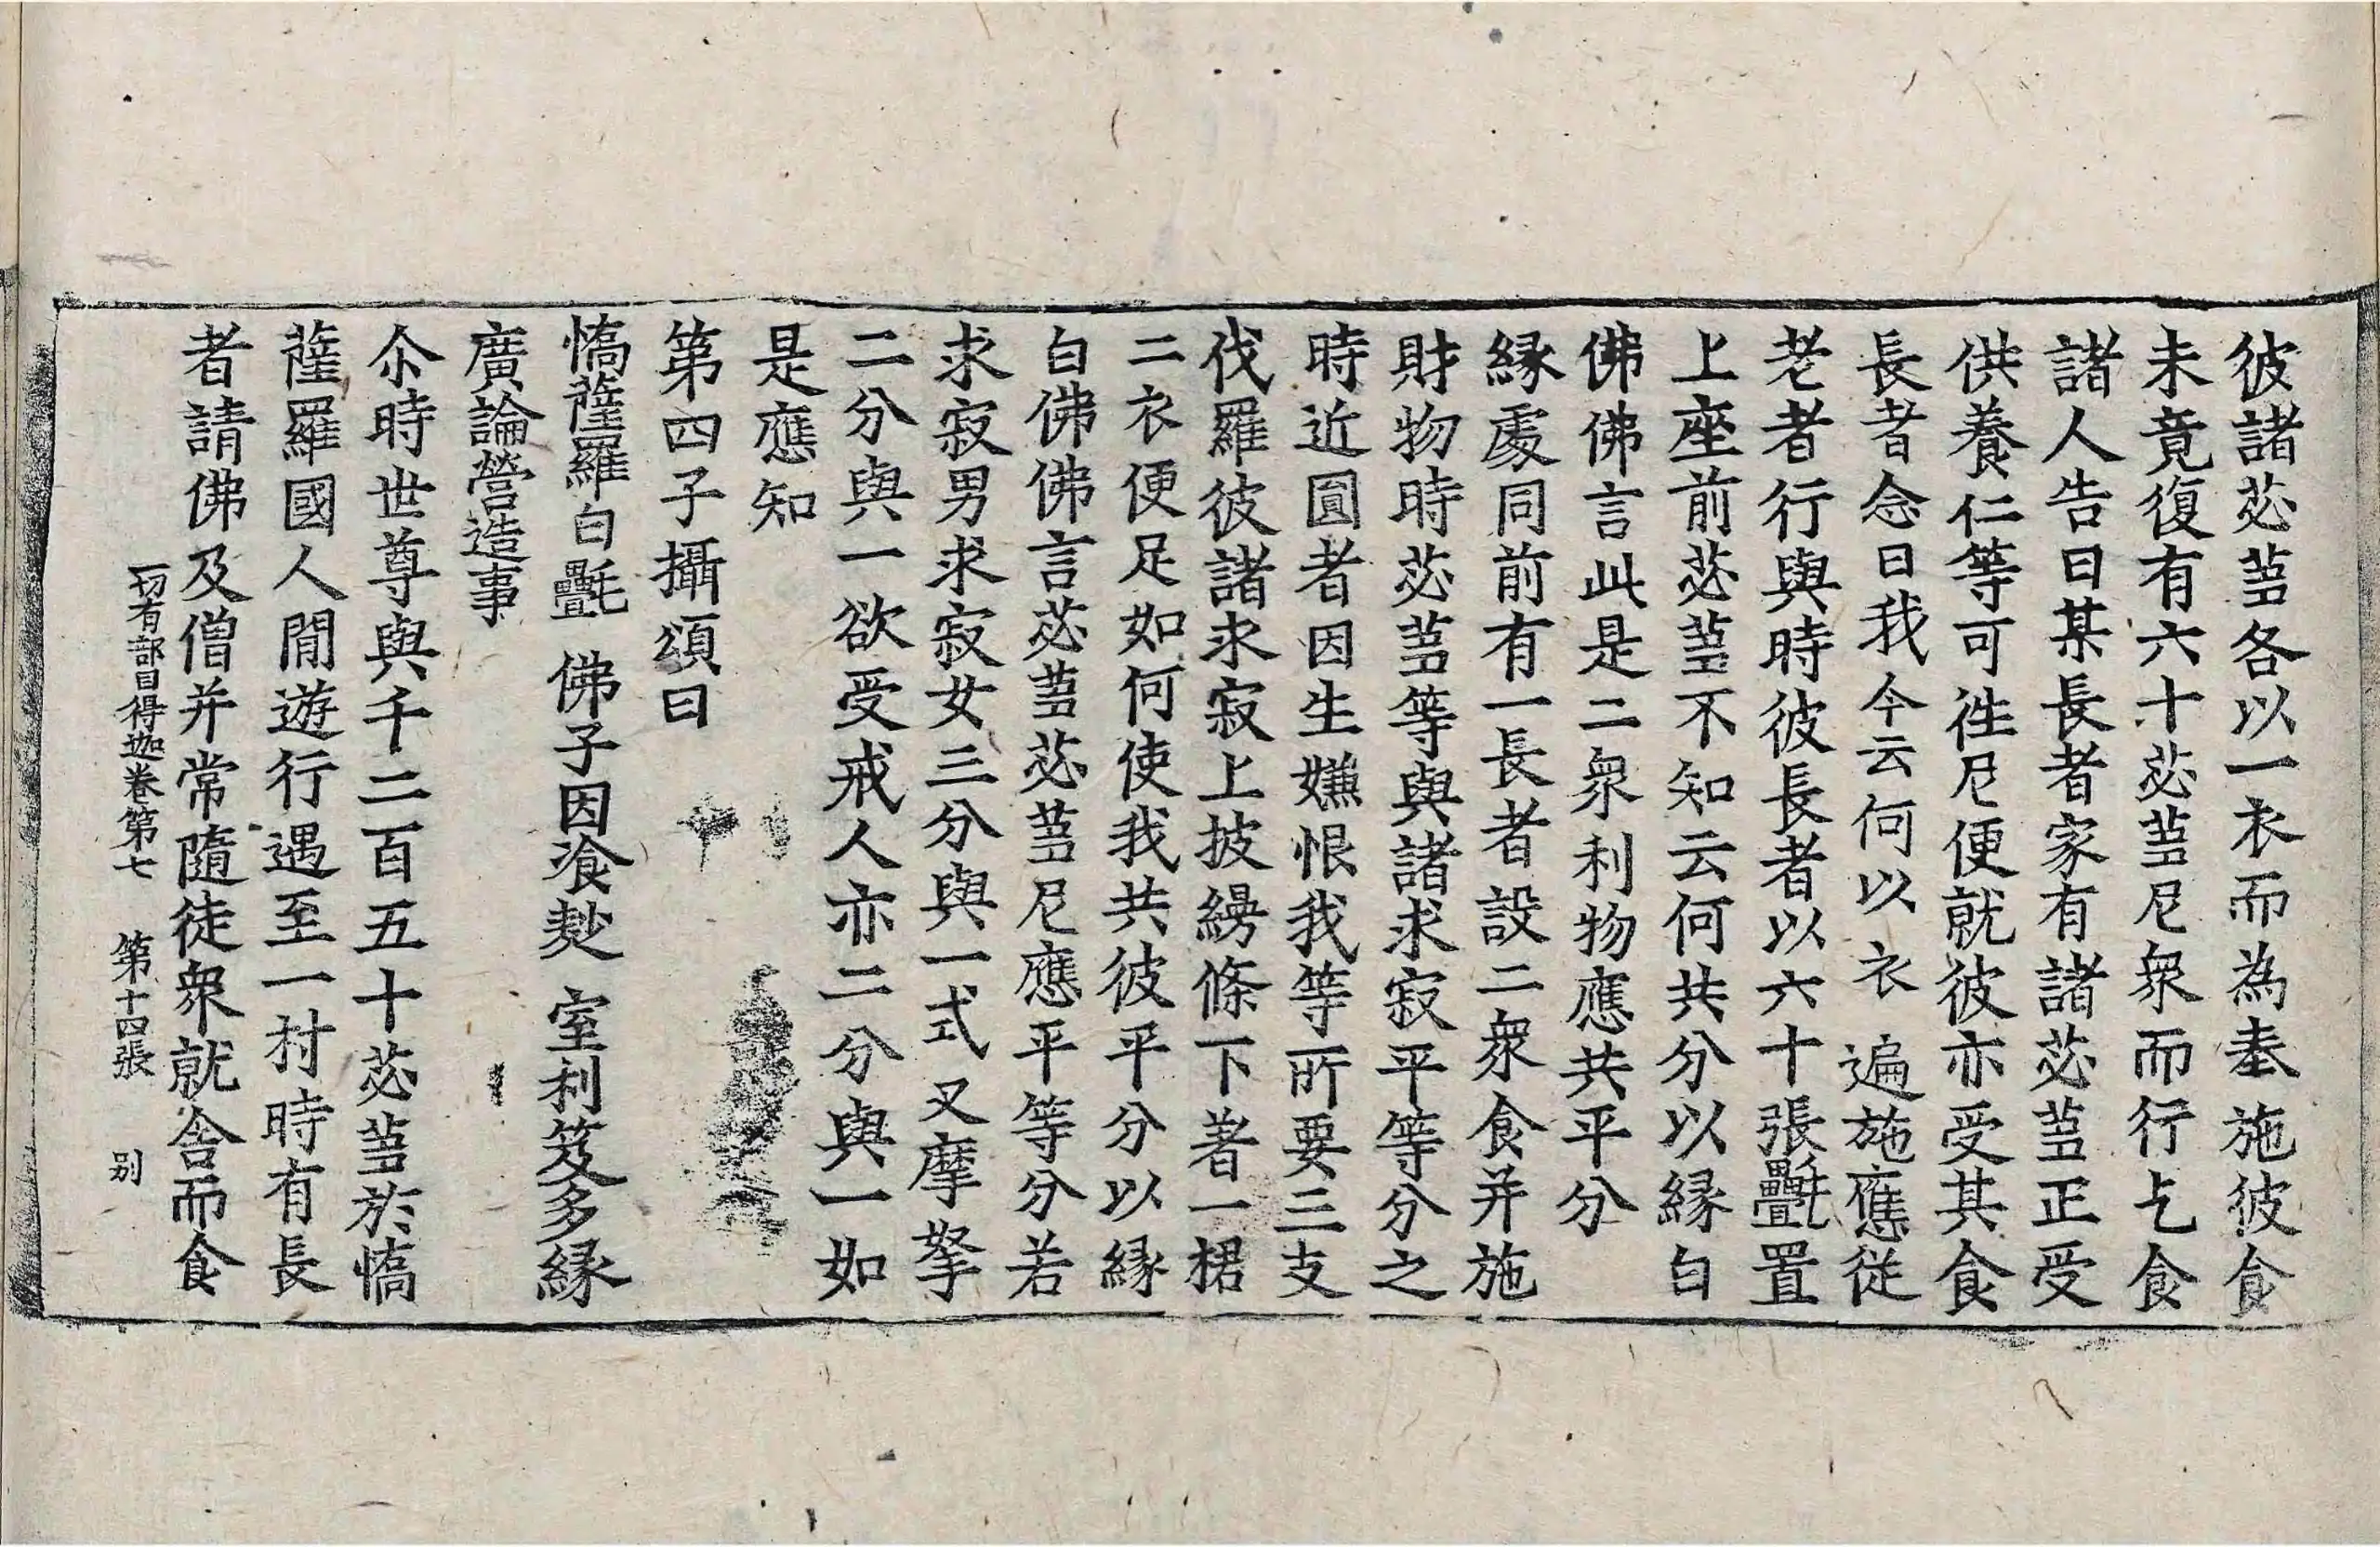 彼諸苾蒭各以一衣而為奉施彼食
未竟復有六十苾蒭尼衆而行乞食
諸人告曰某長者家有諸苾蒭正受
供養仁等可徃尼便就彼亦受其食
長者念曰我今云何以衣遍施應從
老者行與時彼長者以六十張㲲置
上座前苾蒭不知云何共分以縁白
佛佛言此是二衆利物應共平分
縁處同前有一長者設二衆食并施
財物時苾蒭等與諸求寂平等分之
時近圓者因生嫌恨我等所要三支
伐羅彼諸求寂上披縵條下著一裙
二衣便足如何使我共彼平分以縁
白佛佛言苾蒭苾蒭尼應平等分若
求寂男求寂女三分與一式叉摩拏
二分與一欲受戒人亦二分與一如
是應知
第四子攝頌曰
憍薩羅白㲲　佛子因飡麨　室利笈多縁
廣論營造事
尒時世尊與千二百五十苾蒭於憍
薩羅國人間遊行遇至一村時有長
者請佛及僧并常隨徒衆就舍而食
一切有部目得迦卷第七　第十四張　別